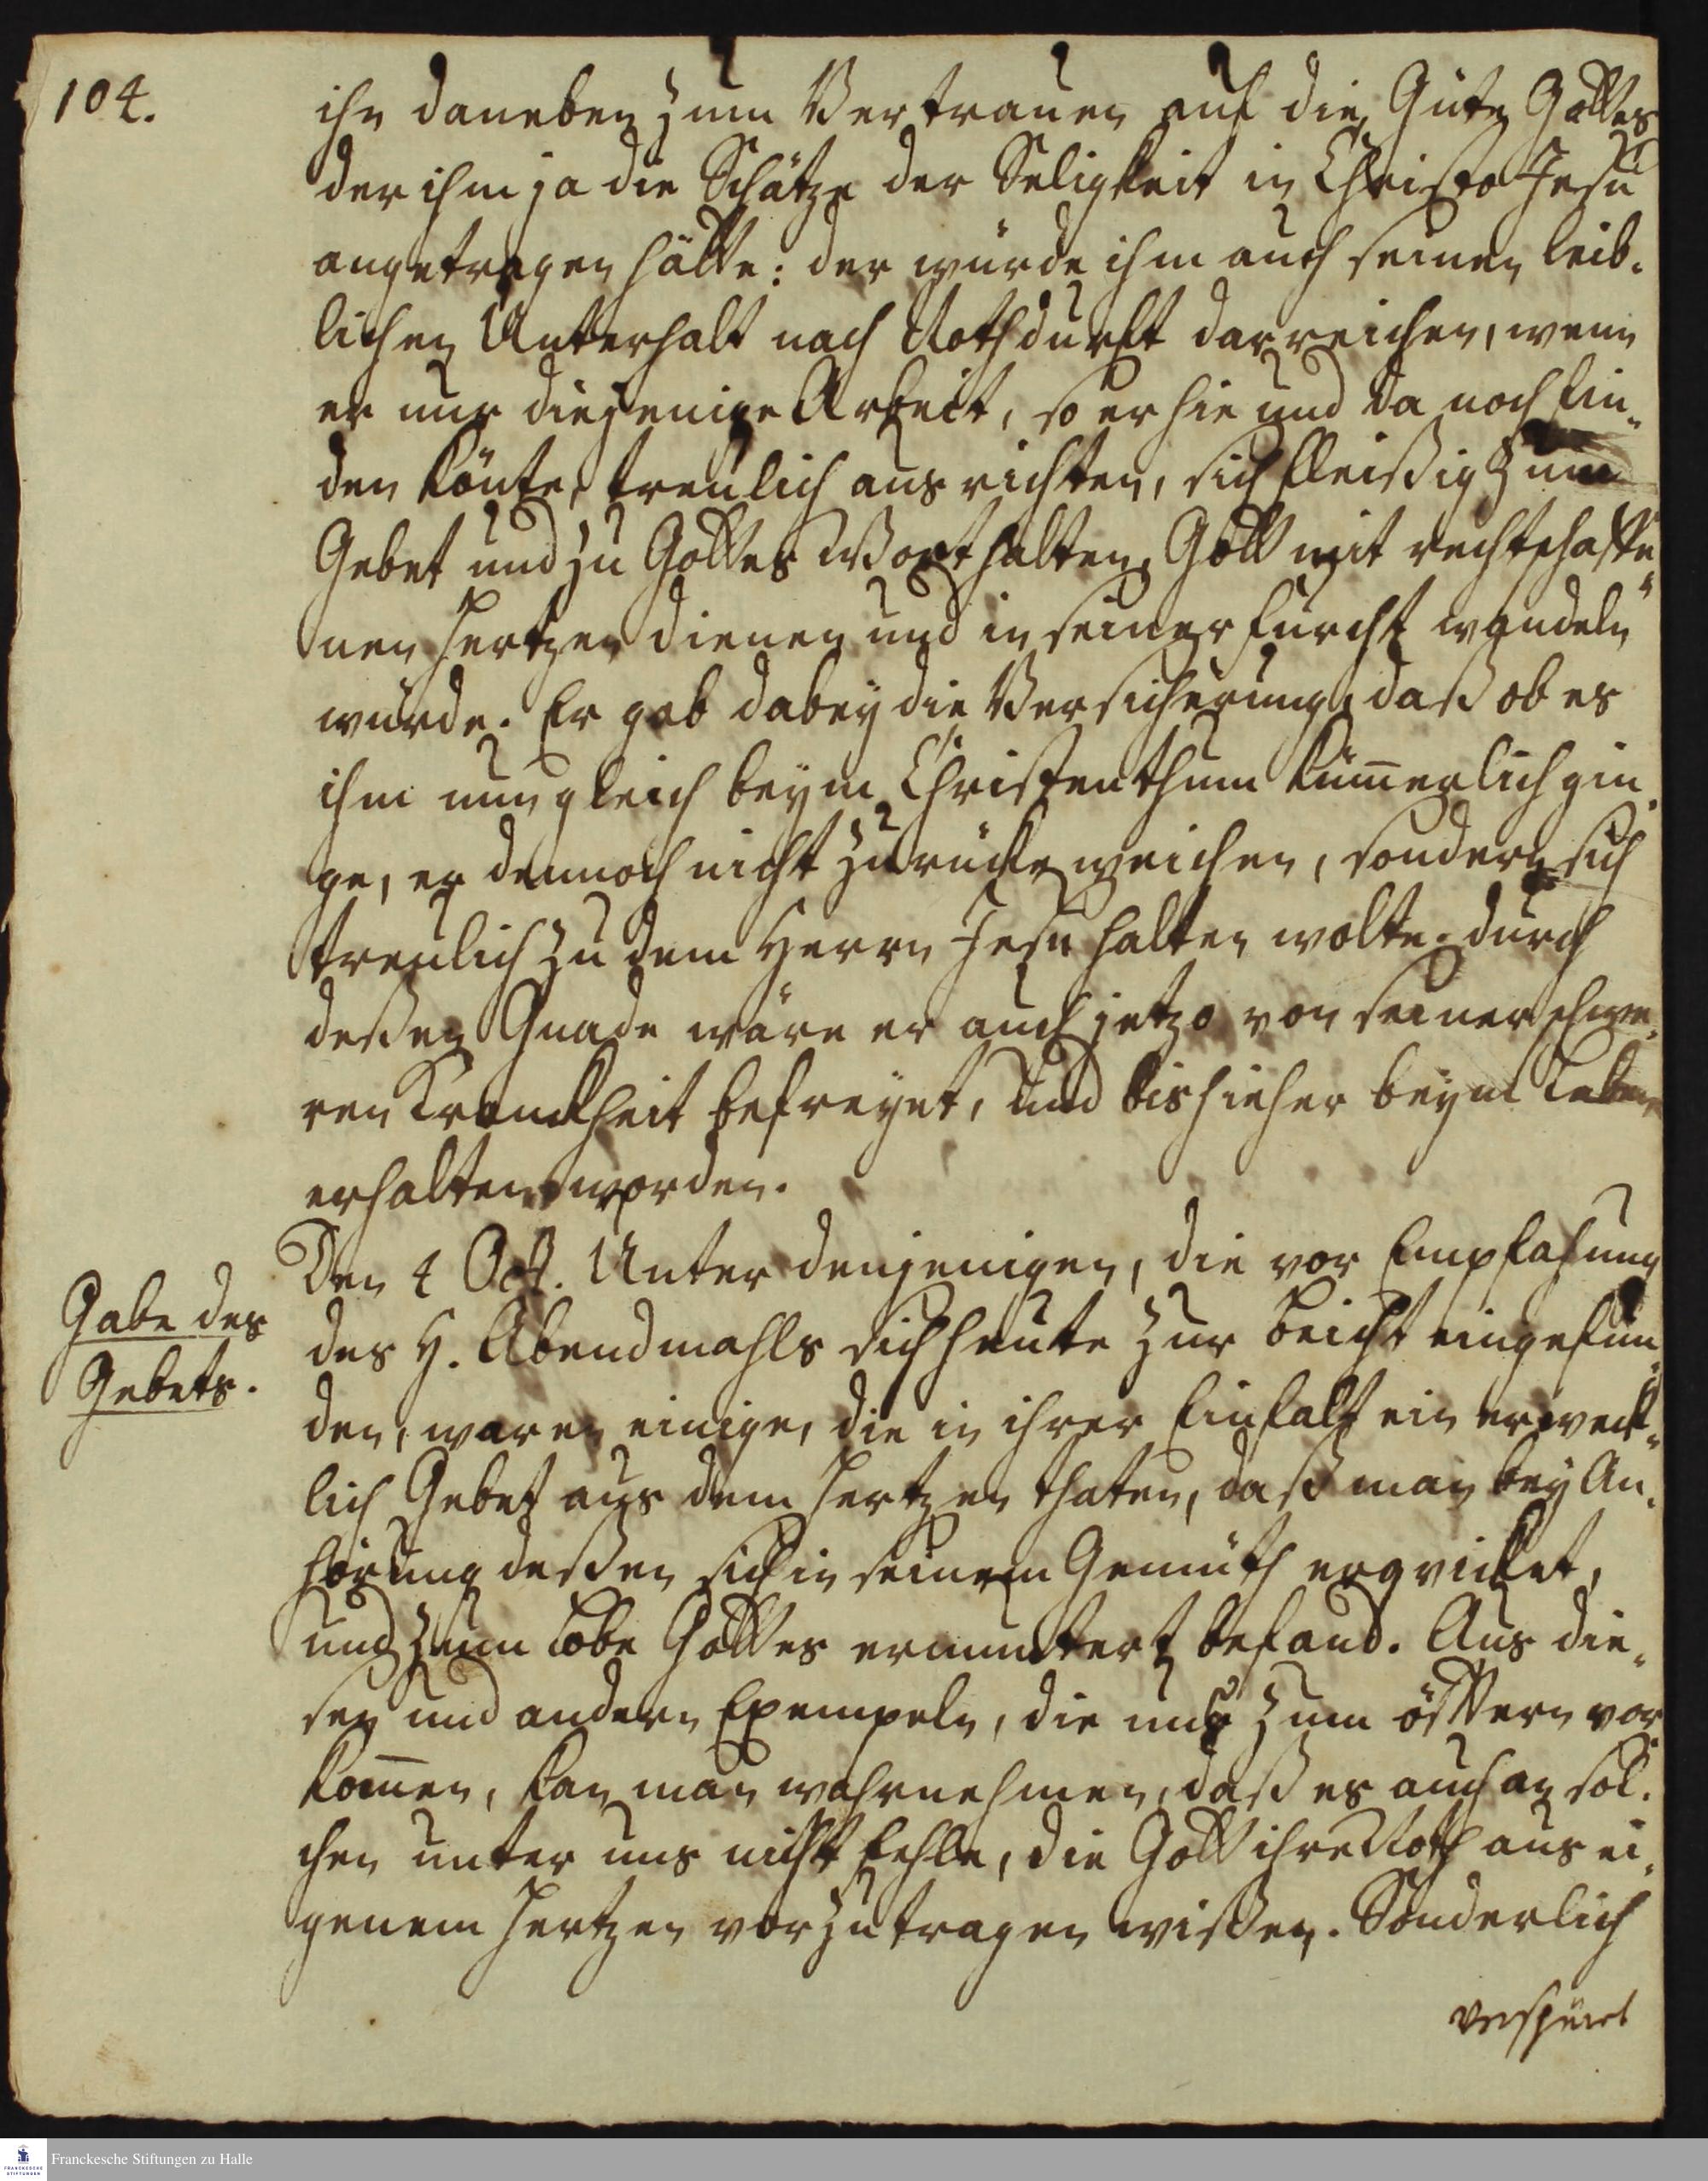 104.
ihn daneben zum Vertrauen auf die Güte Gottes
der ihm ja die Schätze der Seligkeit in Christo Jesu
angetragen hätte: der würde ihm auch seinen leib-
lichen Unterhalt nach Nothdurfft darreichen, wenn
er nur diejenige Arbeit, so er hie und da noch fin-
den könte, treulich ausrichten, sich fleißig zum
Gebet und zu Gottes Wort halten, Gott mit rechtschaffe-
nen Hertzen dienen und in seiner Furcht wandeln
würde. Er gab dabey die Versicherung, daß ob es
ihm nun gleich beym Christenthum kum̄erlich gin-
ge, er dennoch nicht zurücke weichen, sondern sich
treulich zu dem Herrn Jesu halten wolte. durch
deßen Gnade wäre er auch jetzo von seiner schwe-
ren Kranckheit befreyet, und bishieher beym Leben
erhalten worden.
Den 4 Oct. Unter denjenigen, die vor Empfahung
Gabe des
Gebets.
des H. Abendmahls sich heute zur Beicht eingefun-
den, waren einige, die in ihrer Einfalt ein erweck-
lich Gebet aus dem Hertzen thaten, daß man bey An-
hörung deßen sich in seinem Gemüth erqvicket,
und zum Lobe Gottes ermuntert befand. Aus die-
sen und andern Exempeln, die uns zum öfftern vor
kom̄en, kan man wahrnehmen, daß es auch an sol-
chen unter uns nicht fehle, die Gott ihre Noth aus ei-
genem Hertzen vorzutragen wißen. Sonderlich
verspüret
Franckesche Stiftungen zu Halle